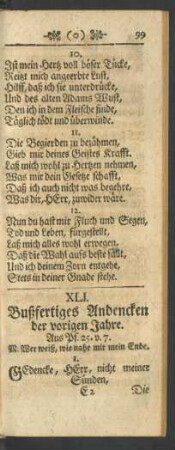 (o) 99
10.
Ist mein Hertz voll böser Tücke,
Reitzt mich angeerbte Lust,
Hilff, daß ich sie unterdrücke,
Und des alten Adams Wust,
Den ich in dem Fleische finde,
Täglich tödt und überwinde.
11.
Die Begierden zu bezähmen,
Gieb mir deines Geistes Krafft.
Laß mich wohl zu Hertzen nehmen,
Was mir dein Gesetz schafft,
Daß ich auch nicht was begehre,
Was dir, HErr, zuwider wäre.
12.
Nun du hast mir Fluch und Segen,
Tod und Leben, fürgestellt,
Laß mich alles wohl erwegen,
Daß die Wahl aufs beste fällt,
Und ich deinem Zorn entgehe,
Stets in deiner Gnade stehe.
XLI.
Bußfertiges Andencken
der vorigen Jahre.
Aus Ps. 25. v. 7.
M. Wer weiß, wie nahe mir mein Ende.
1.
GEdencke, HErr, nicht meiner
Sünden,
E2 Die